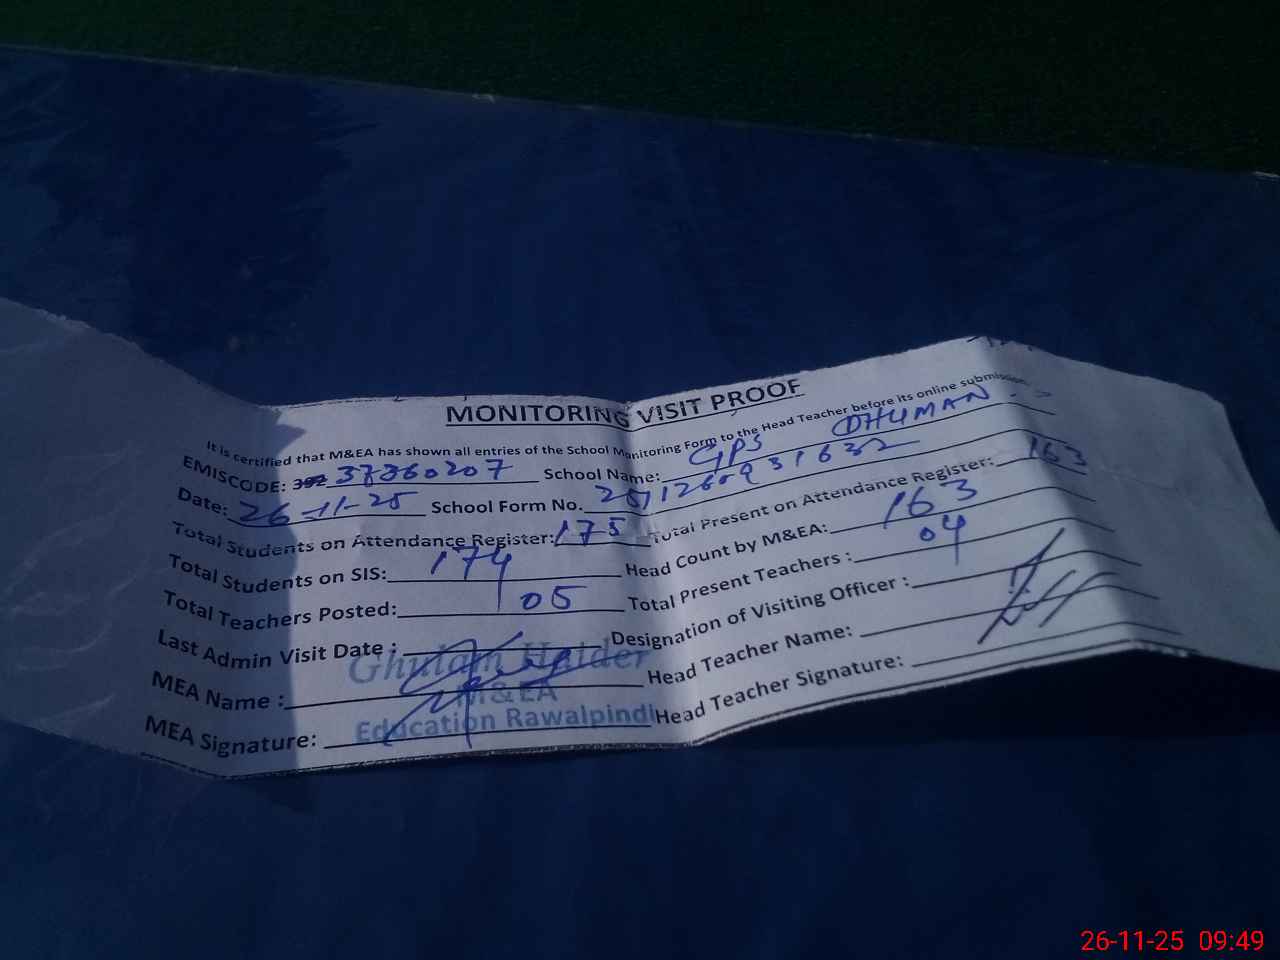 MONITORING VISIT PROOF
It is certified that M&EA has shown all entries of the School Monitoring Form to the Head Teacher before its online submission.
EMISCODE: 37360207 School Name: GPS DHUMAN
Date: 26-11-25 School Form No. 251126093 1632
Total Students on Attendance Register: 175 Total Present on Attendance Register: 163
Total Students on SIS: 174 Head Count by M&EA: 163
Total Teachers Posted: 05 Total Present Teachers : 04
Last Admin Visit Date : Designation of Visiting Officer :
MEA Name : Ghulam Haider Head Teacher Name:
M&EA
MEA Signature: Education Rawalpindi Head Teacher Signature:
26-11-25 09:49